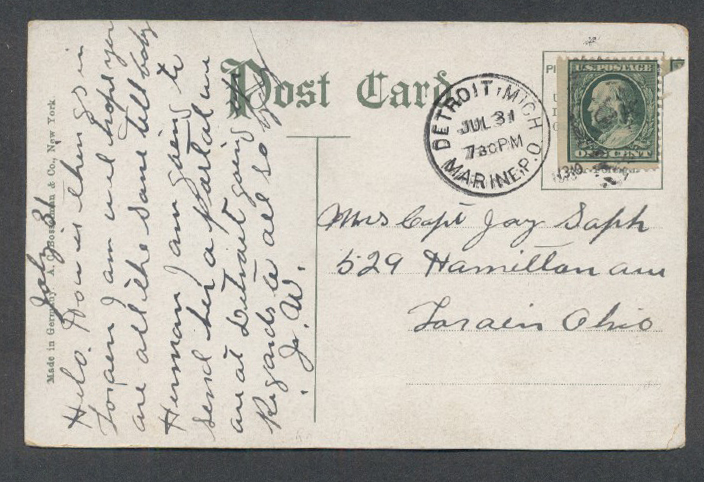 Post Card
DETROIT, MICH.
JUL 31
730 PM
MARINE P.O.
U.S. POSTAGE
ONE CENT
Made in Germany A. C. Bosselman & Co., New York.
July 31
Helo. How is things in
Loraen I am well hope you
are all the same tell baby
Herman I am going to
send her a postal we
are at Detroit going up
Regards to all so by by
J. W.
Mrs Capt Jay Saph
529 Hamilton ave
Loraen Ohio